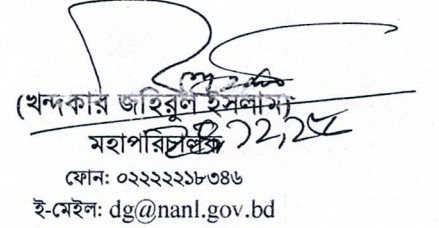 (খন্দকার জহিরুল ইসলাম)
মহাপরিচালক
ফোন: ০২২২২২১৮৩৪৬
ই-মেইল: dg@nanl.gov.bd